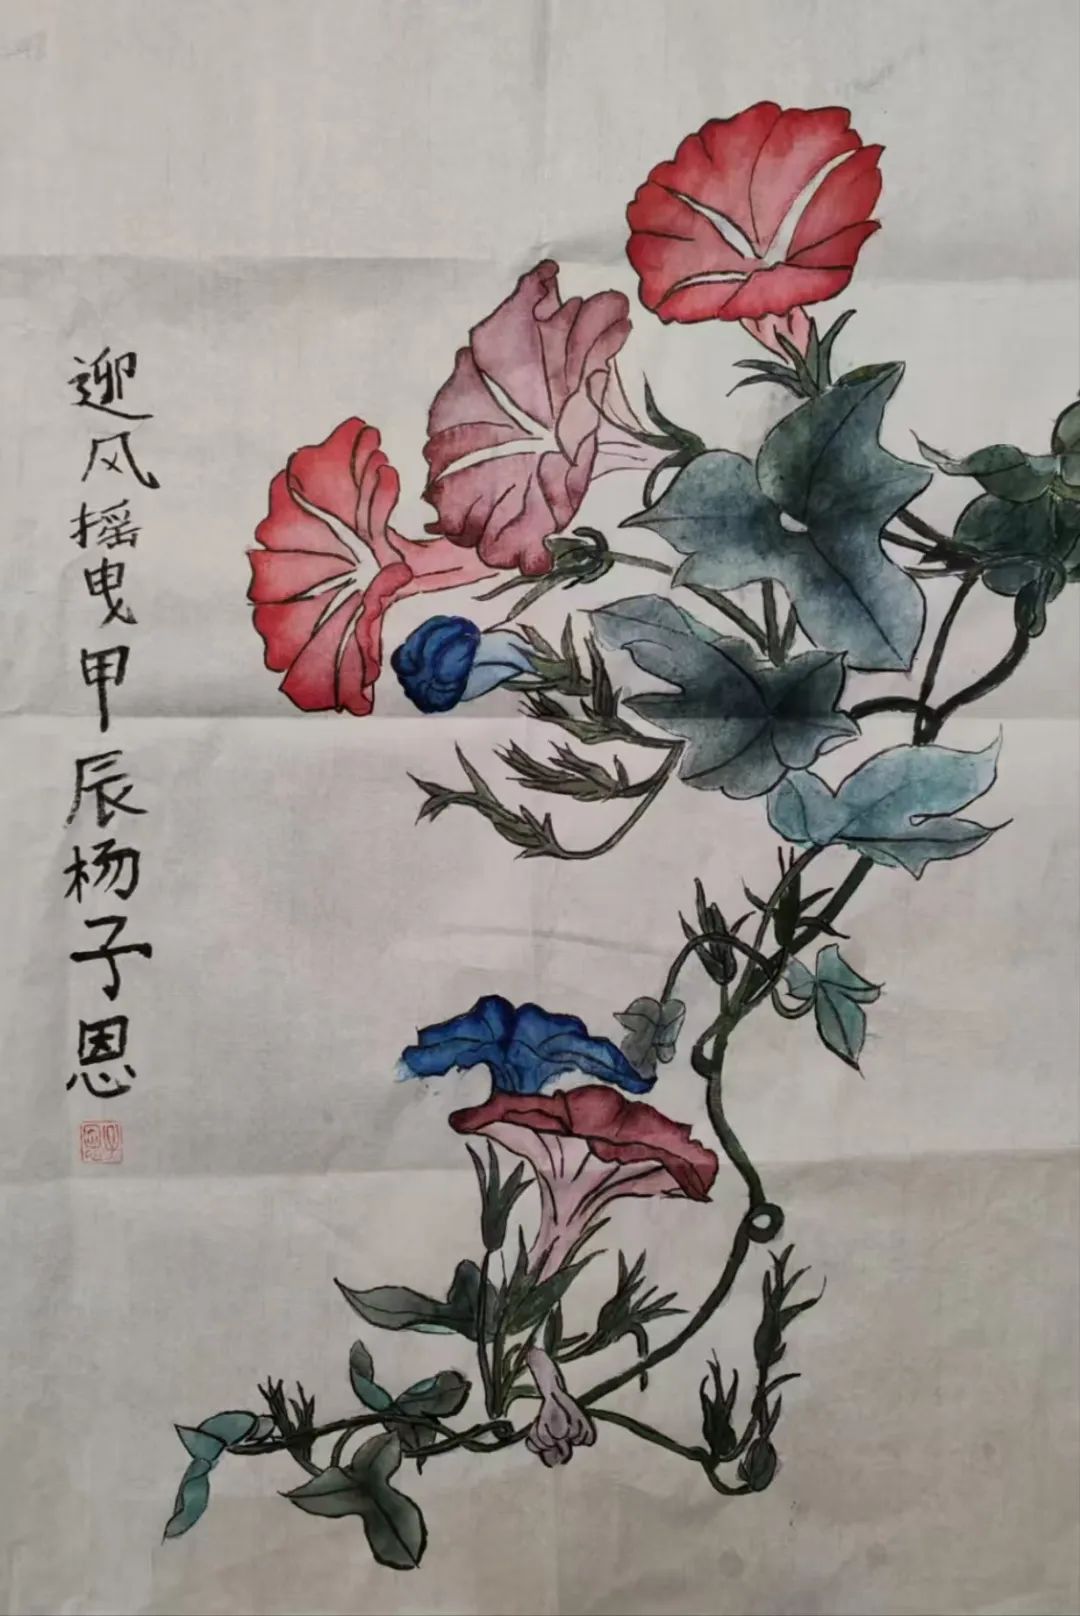 迎风摇曳甲辰杨子恩
子恩